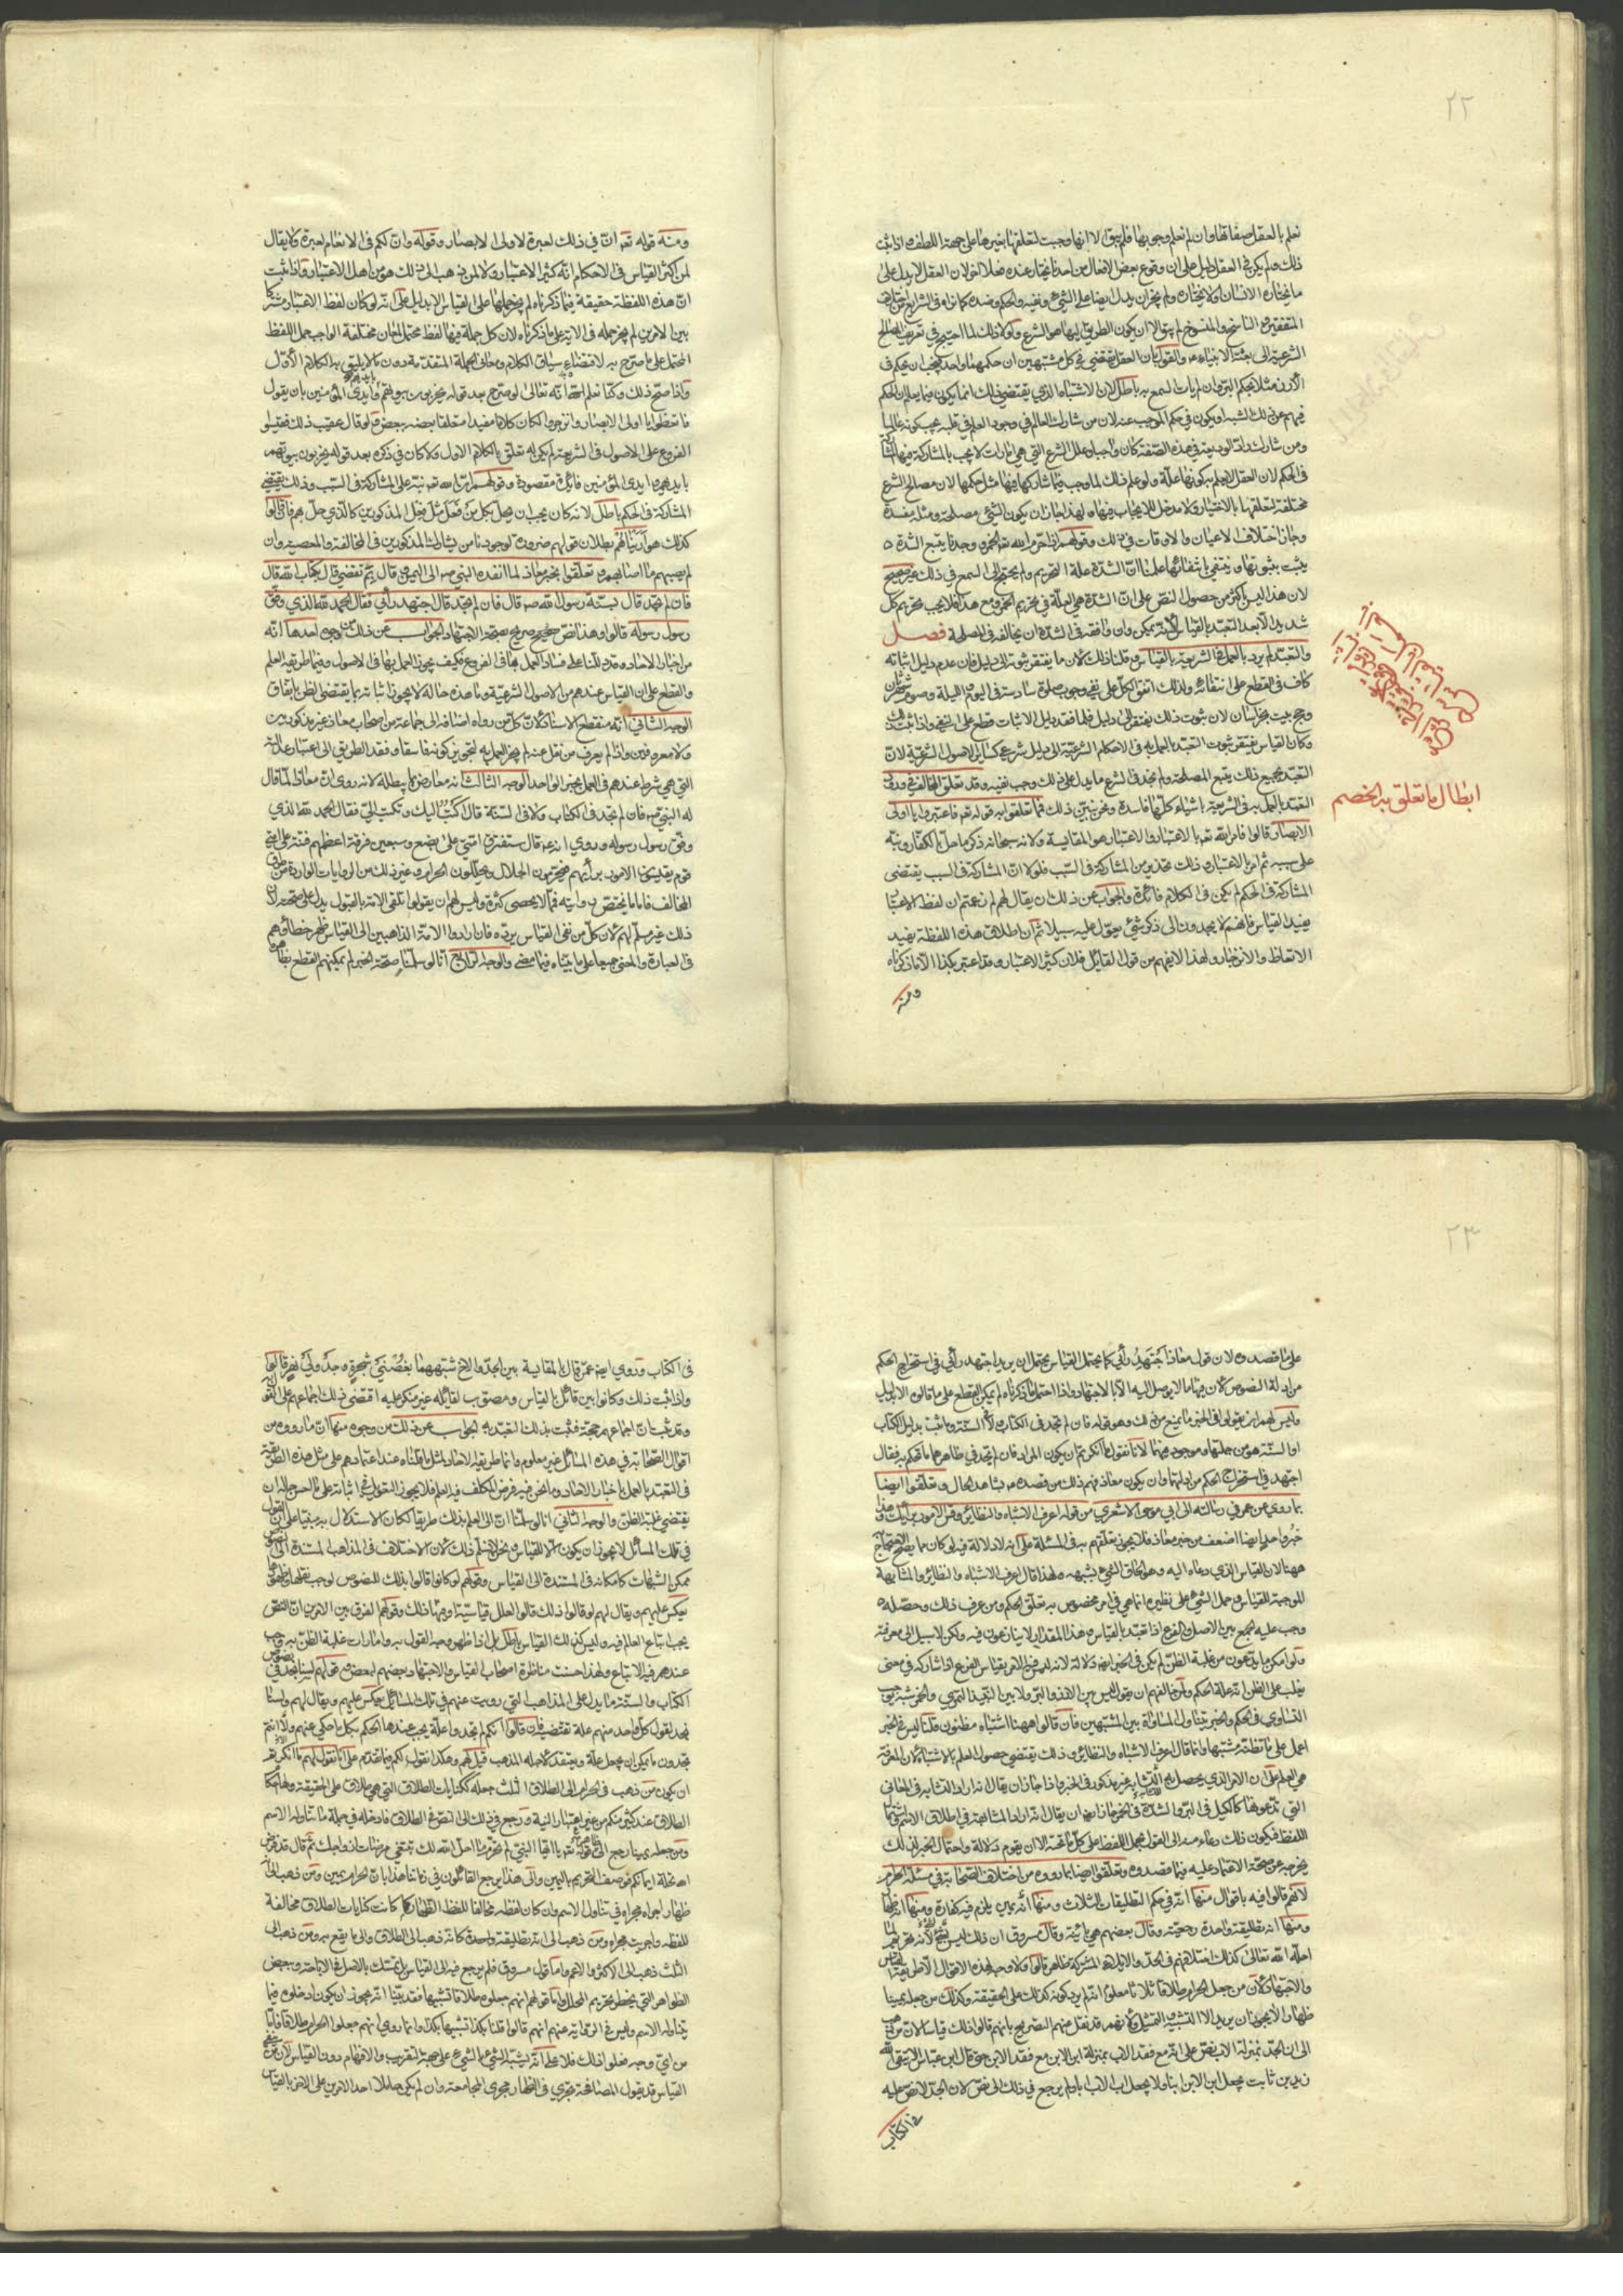 ٢٢
نعلم بالعقل صفاتها وان لم نعلم وجوبها فلم يبق الا انها وجبت لتعلقها بغيرها على جهة اللطف واذا ثبت
ذلك ولم يكن في العقل دليل على ان وقوع بعض الافعال من احدنا يختار عنده فعلا اخر لان العقل لا يدل على
ما يختاره الانسان ولا يختاره ولم يجز ان يدل ايضا على الشيء ونفيه والحكم وضده كما نراه في الشرايع من اختلاف
المتفقين والناسخ والمنسوخ لم يبق الا ان يكون الطريق اليها هو السمع ولولا ذلك لما احتيج في تعريف المصالح
الشرعية الى بعثة الانبياء والقول بان العقل يقتضي في كل مشتبهين ان حكمهما واحد يجب ان يحكم في
الارز مثلا بحكم البر وان لم يات السمع به باطل لان الاشتباه الذي يقتضي ذلك انما يكون فيما يعلم ان الحكم
فيهم عن ذلك الشبه او يكون في حكم الموجب عنه لان من شارك العالم في وجود العلم في قلبه يجب كونه عالما
ومن شارك راد الوديعة في هذه الصفة كان واجبا وعلل الشرع التي هي امارات لا يجب بالمشاركة فيها
في الحكم لان العقل لا يعلم بكونها علة ولو علم ذلك لما وجب فيما شاركها فيها مثل حكمها لان مصالح الشرع
مختلفة لتعلقها بالاختيار ولا مدخل للايجاب فيها ولهذا جاز ان يكون الشيء مصلحة ومثله مفسدة
وجاز اختلاف الاعيان والاوقات في ذلك وقولهم اذا حرم الله تعه الخمر ووجدنا يتبع الشدة
يثبت بثبوتها وينتفي بانتفائها علمنا ان الشدة علة التحريم ولم يحتج الى السمع في ذلك غير صحيح
لان هذا ليس باكثر من حصول النص على ان الشدة هي العلة في تحريم الخمر ومع هذا فلا يجب تحريم كل
شديد الا بعد التعبد بالقياس لانه يمكن وان وافقه في الشدة ان يخالفه في المصلحة فصل
والتعبد لم يرد بالعمل في الشريعة بالقياس وقلنا ذلك لان ما يفتقر ثبوته الى دليل فان عدم دليل اثباته
كاف في القطع على انتفائه ولذلك اتفق الكل على نفي وجوب صلوة سادسة في اليوم والليلة وصوم شهر ثان
وحج بيت بخراسان لان ثبوت ذلك يفتقر الى دليل فلما فقد دليل الاثبات قطع على النفي واذا ثبت ذلك
وكان القياس يفتقر ثبوت التعبد بالعمل به في الاحكام الشرعية الى دليل شرعي كسائر الاصول الشرعية لان
التعبد بجميع ذلك يتبع المصلحة ولم نجد في الشرع ما يدل على ذلك وجب نفيه وقد تعلق المخالف في ورود
التعبد بالعمل به في الشريعة باشياء كلها فاسدة ونحن نبين ذلك فما تعلقوا به قوله تعه فاعتبروا يا اولى
الابصار قالوا فامر الله تعه بالاعتبار والاعتبار هو المقايسة ولانه سبحانه ذكر ما حل بالكفار ونبه
على سببه ثم امر بالاعتبار وذلك تحذير من المشاركة في السبب فلولا ان المشاركة في السبب يقتضى
المشاركة في الحكم لم يكن في الكلام فائدة والجواب عن ذلك ان يقال لهم لم زعمتم ان لفظ الاعتبار
يفيد القياس فانهم لا يجدون الى ذكر شيء يعول عليه سبيلا ثم ان اطلاق هذه اللفظة يفيد
الاتعاظ والانزجار ولهذا لا يفهم من قول القائل فلان كثير الاعتبار وقد اعتبر بكذا الا ما ذكرناه
ومنه
ابطال ما تعلق به الخصم
ومنه قوله تعه ان في ذلك لعبرة لاولى الابصار وقوله وان لكم في الانعام لعبرة ولا يقال
لمن اكثر القياس في الاحكام انه كثير الاعتبار ولا لمن ذهب الى ذلك هو من اهل الاعتبار فاذا ثبت
ان هذه اللفظة حقيقة فيما ذكرناه لم يجز حملها على القياس الا بدليل على انه لو كان لفظ الاعتبار مشتركا
بين الامرين لم يجز حمله في الاية على ما ذكرناه لان كل جملة فيها لفظ محتمل لمعان مختلفة الواجب حمل اللفظ
المحتمل على ما صرح به لاقتضاء سياق الكلام ومعاني الجملة المتقدمة دون ما لا يليق به الكلام الاول
واذا صح ذلك وكنا نعلم انه تعالى لو صرح بعد قوله يخربون بيوتهم بايديهم وايدى المؤمنين بان يقول
فاتعظوا يا اولى الابصار وانزجروا لكان كلاما مفيدا متعلقا بعضه ببعض ولو قال عقيب ذلك فقيسوا
الفروع على الاصول في الشريعة لم يكن له تعلق بالكلام الاول ولا كان في ذكره بعد قوله يخربون بيوتهم
بايديهم وايدى المؤمنين فائدة مقصودة وقولهم ان الله تعه نبه على المشاركة في السبب وذلك يقتضي
المشاركة في الحكم باطل لانه كان يجب ان يحل بكل من فعل مثل فعل المذكورين كالذي حل بهم فان قالوا
كذلك هو اريناهم بطلان قولهم ضرورة لوجودنا من يشارك المذكورين في المخالفة والمعصية وان
لم يصبهم ما اصابهم وتعلقوا بخبر معاذ لما انفذه النبي صه الى اليمن قال بم تقضي قال بكتاب الله قال
فان لم تجد قال بسنة رسول الله صه قال فان لم تجد قال اجتهد رأيي فقال الحمد لله الذي وفق
رسول رسوله قالوا وهذا نص صريح بصحة الاجتهاد والجواب عن ذلك من وجوه احدها انه
من اخبار الاحاد وقد دللنا على فساد العمل بها في الفروع فكيف يجوز العمل بها في الاصول وفيما طريقه العلم
والقطع على ان القياس عندهم من الاصول الشرعية وما هذه حاله لا يجوز اثباته بما يقتضى الظن باتفاق
الوجه الثاني انه منقطع الاسناد لان كل من رواه اضافه الى جماعة من اصحاب معاذ غير مذكورين
ولا معروفين واذا لم يعرف من نقل عنه لم يجز العمل به لتجويز كونه فاسقا وفقد الطريق الى اعتبار عدالته
التي هي شرط عندهم في العمل بخبر الواحد الوجه الثالث انه معارض بما يبطله لانه روى ان معاذا لما قال
له النبي صه فان لم تجد في الكتاب ولا في السنة قال اكتب اليك وتكتب الي فقال الحمد لله الذي
وفق رسول رسوله وروي انه قال ستفترق امتي على بضع وسبعين فرقة اعظمهم فتنة على امتي
قوم يقيسون الامور برأيهم فيحرمون الحلال ويحللون الحرام وغير ذلك من الروايات الواردة من طرق
المخالف فاما ما يختص بروايته فما لا يحصى كثرة وليس لهم ان يقولوا تلقى الامة بالقبول يدل على صحته لان
ذلك غير مسلم لهم لان كل من نفى القياس يرده فان ارادوا الامة الذاهبين الى القياس ظهر خطاؤهم
في العبارة والمعنى جميعا على ما بيناه فيما مضى والوجه الرابع انا لو سلمنا صحة الخبر لم يمكنهم القطع بظاهره
٢٣
على ما قصدوه لان قول معاذ اجتهد رأيي كما يحتمل القياس يحتمل ان يريد اجتهد رأيي في استخراج الحكم
من ادلة النصوص لان فيها ما لا يوصل اليه الا بالاجتهاد واذا احتمل ما ذكرناه لم يمكن القطع على ما قالوه الا بدليل
وليس لهم ان يقولوا في الخبر ما يمنع من ذلك وهو قوله فان لم تجد في الكتاب ولا في السنة وما ثبت بدليل الكتاب
او السنة هو من جملتها وموجود فيهما لانا نقول ما انكرتم ان يكون المراد فان لم تجد في ظاهرها ما تحكم به فقال
اجتهد في استخراج الحكم من ادلتها وان يكون معاذ فهم ذلك من قصده صه بشاهد الحال وتعلقوا ايضا
بما روي عن عمر في رسالته الى ابي موسى الاشعري من قوله اعرف الاشباه والنظائر وقس الامور برأيك وهذا
خبر واحد ايضا اضعف من خبر معاذ فلا يجوز تعلقهم به في المسئلة على انه لا دلالة فيه لو كان مما يصح الاحتجاج
ههنا لان القياس الذي دعاه اليه وهو الحاق الشيء بشبهه ولهذا قال اعرف الاشباه والنظائر والمشابهة
الموجبة للقياس وحمل الشيء على نظيره انما هي في امر مخصوص به تعلق الحكم ومن عرف ذلك وحصله
وجب عليه الجمع بين الاصل والفرع اذا تعبد بالقياس وهذا المقدار لا ينازعون فيه ولكن لا سبيل الى معرفته
ولو امكن ما يدعون من غلبة الظن لم يكن في الخبر ايضا دلالة لانه لم يأمر بقياس الفرع اذا شاركه في معنى
يغلب على الظن انه علة الحكم
التساوي في الحكم والخبر يتناول المساواة بين المشتبهين فان قالوا ههنا اشتباه مظنون قلنا ليس في الخبر
اعمل على ما تظنه مشتبها وانما قال اعرف الاشباه والنظائر وذلك يقتضي حصول العلم بالاشتباه لان المعرفة
هي العلم على ان الامر الذي يحصل به التشابه غير مذكور في الخبر واذا جاز ان يقال انه اراد التشابه في المعاني
التي تدعونها كالكيل في البر والشدة في الخمر جاز ايضا ان يقال انه اراد المشابهة في اطلاق الاسم واشتمال
اللفظ فيكون ذلك دعاء منه الى القول بحمل اللفظ على كل ما تحته الا ان يقوم دلالة واحتمال الخبر لذلك
يخرجه عن صحة الاعتماد عليه فيما قصدوه وتعلقوا ايضا بما رووه من اختلاف الصحابة في مسئلة الحرام
لانهم قالوا فيه باقوال منها انه في حكم التطليقات الثلاث ومنها انه يمين يلزم فيه كفارة ومنها انه ظهار
ومنها انه تطليقة واحدة رجعية وقال بعضهم هي بائنة وقال مسروق ان ذلك ليس بشيء لانه تحريم لما
احله الله تعالى كذلك اختلافهم في الجد والايلاء والمشتركة ظاهر قالوا ولا وجه لهذه الاقوال الا طريقة القياس
والاجتهاد لان من جعل الحرام طلاقا ثلاثا معلوم انه لم يرد كونه كذلك على الحقيقة وكذلك من جعله يمينا
ظهارا ولا يجوز ان يريد الا التشبيه والتمثيل ولانه قد نقل عنهم التصريح بانهم قالوا ذلك قياسا لان من ذهب
الى ان الجد بمنزلة الاب نص على انه مع فقد الاب بمنزلة ابن الابن مع فقد الابن حتى قال ابن عباس الا يتقي الله
زيد بن ثابت يجعل ابن الابن ابنا ولا يجعل اب الاب ابا ولم يرجع في ذلك الى نص لان الجد لا نص عليه
في الكتاب
في الكتاب وروي ايضا عن قال بالمقايسة بين الجد والاخ شبههما بغصني شجرة وجدولي نهر قالوا
واذا ثبت ذلك وكانوا بين قائل بالقياس ومصوب لقائله غير منكر عليه اقتضى ذلك اجماعهم على القول به
وقد ثبت ان اجماعهم حجة فثبت بذلك التعبد به الجواب عن ذلك من وجوه منها ان ما رووه من
اقوال الصحابة في هذه المسائل غير معلوم وانما طريقه الاحاد
في التعبد بالعمل باخبار الاحاد وما نحن فيه فرض المكلف فيه العلم فلا يجوز التعويل في اثباته على ما احسن حاله ان
يقتضي غلبة الظن والوجه الثاني انا لو سلمنا ان الى العلم بذلك طريقا لكان الاستدلال به مبنيا على ان القول
في تلك المسائل لا يجوز ان يكون الا للقياس ونحن لا نسلم ذلك لان الاختلاف في المذاهب المستندة الى النصوص
ممكن للشبهات كامكانه في المستندة الى القياس وقولهم لو كانوا قالوا بذلك للنصوص لوجب نقلها وظهورها
يعكس عليهم ويقال لهم لو قالوا ذلك قالوا العلل قياسية وقولهم الفرق بين الامرين ان النص
يجب اتباع العالم فيه وليس كذلك القياس باطل بل اذا ظهر وجه القول به وامارات غلبة الظن به وجب
عندهم فيه الاتباع ولهذا حسنت مناظرة اصحاب القياس والاجتهاد بعضهم لبعض وقولهم لسنا نجد في نصوص
الكتاب والسنة ما يدل على المذاهب التي رويت عنهم في تلك المسائل يعكس عليهم ويقال لهم ولسنا
نجد لقول كل واحد منهم علة تقتضيه فان قالوا انكم لم تجدوا علة يجب عندها الحكم بكل ما حكي عنهم ولا انتم
تجدون ما يمكن ان يجعل علة ويعتقد لاجله المذهب قيل لهم وهكذا نقول لكم فيما تقدم على انا نقول لهم ما انكرتم
ان يكون من ذهب في الحرام الى الطلاق الثلث جعله ككنايات الطلاق التي هي طلاق على الحقيقة
الطلاق عند كثير منكم من غير اعتبار النية ورجع في ذلك الى النص في الطلاق فادخله في جملة ما تناوله الاسم
ومن جعله يمينا رجع الى قوله تعه يا ايها النبي لم تحرم ما احل الله لك تبتغي مرضات ازواجك ثم قال قد فرض
الله تحلة ايمانكم فوصف التحريم باليمين والى هذا يرجع القائلون في زماننا هذا بان الحرام يمين ومن ذهب الى انه
ظهار اجراه مجراه في تناول الاسم وان كان لفظه مخالفا للفظ الظهار كما كانت كنايات الطلاق مخالفة
للفظه واجريت مجراه ومن ذهب الى انه تطليقة واحدة كانه ذهب الى الطلاق والى ما يقع به ومن ذهب الى
الثلث ذهب الى الاكثر والاعم واما قول مسروق فلم يرجع فيه الى القياس بل تمسك بالاصل في الاباحة وببعض
الظواهر التي يحظر تحريم المحلل واما قولهم انهم جعلوه طلاقا تشبيها فقد بينا انه يجوز ان يكون ادخلوه فيما
يتناوله الاسم وليس في الرواية عنهم انهم قالوا قلنا بكذا تشبيها بكذا وانما روي انهم جعلوا الحرام طلاقا فاما
من اي وجه فعلوا ذلك فلا علم انه يشبه الشيء بالشيء على جهة التقريب والافهام دون القياس لان من
القياس قد يقول المصافحة تجري في الظهار مجرى المجامعة وان لم يكن حاملا احد الامرين على الاخر بالقياس